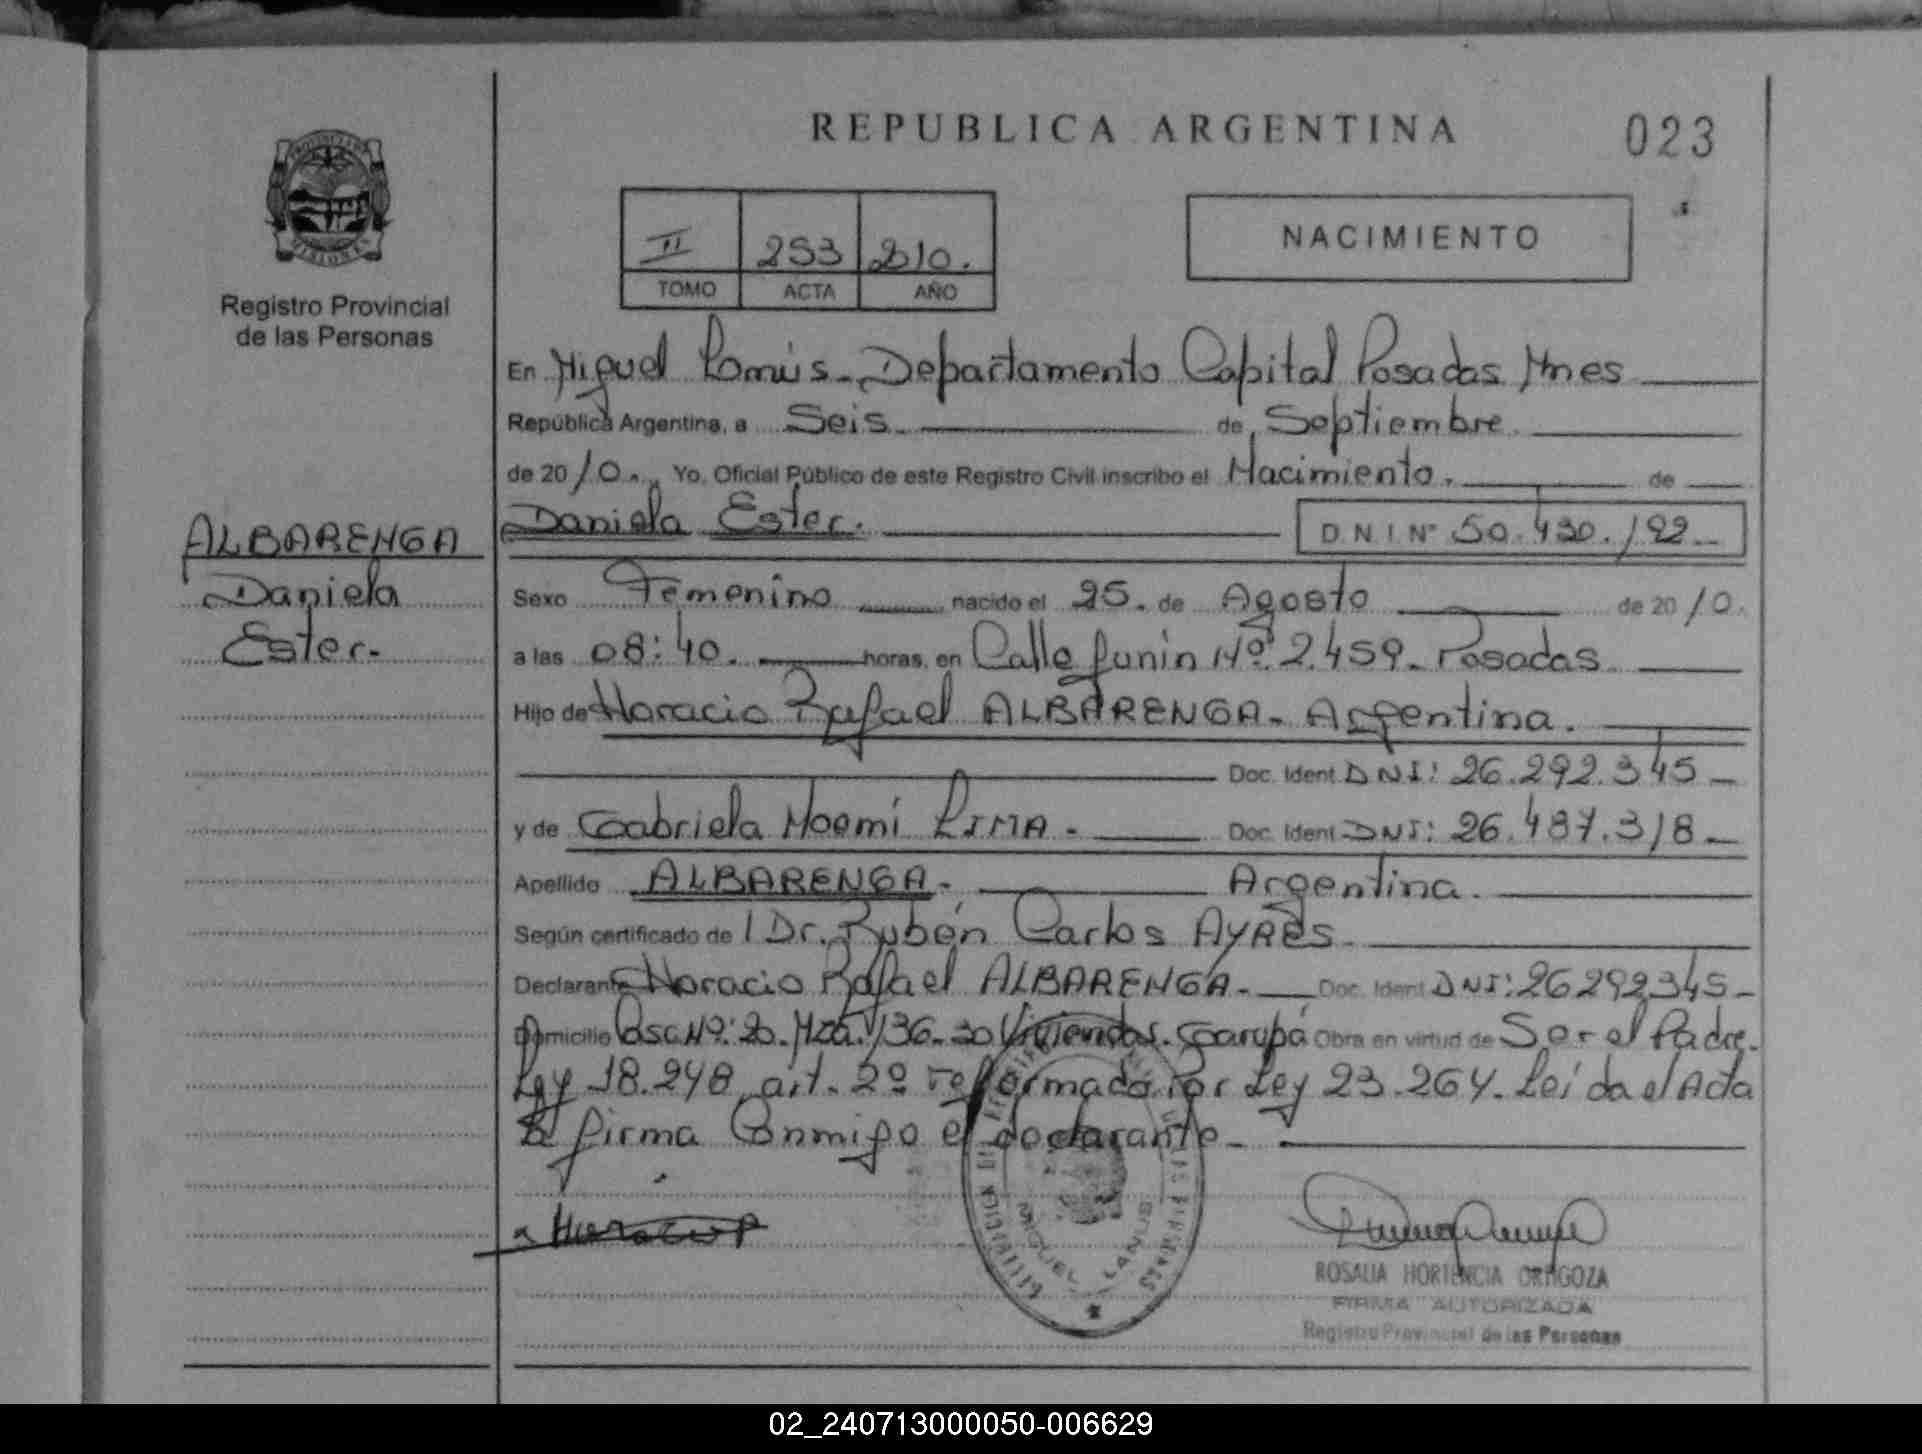 REPUBLICA ARGENTINA
023
PROVINCIA DE
MISIONES
Registro Provincial
de las Personas
II 253 2010.
TOMO ACTA AÑO
NACIMIENTO
En Miguel Lanús - Departamento Capital Posadas Mnes
República Argentina, a Seis de Septiembre.
de 2010. Yo, Oficial Público de este Registro Civil inscribo el Nacimiento. de
Daniela Ester.
D.N.I. Nº 50.430.192
ALBARENGA
Daniela
Ester.
Sexo Femenino nacido el 25. de Agosto de 2010.
a las 08:40. horas, en Calle Junín Nº 2.459. Posadas
Hijo de Horacio Rafael ALBARENGA. Argentina.
Doc. Ident. DNI: 26.292.345
y de Gabriela Noemí LIMA. Doc. Ident. DNI: 26.487.318
Apellido ALBARENGA. Argentina.
Según certificado de l Dr. Rubén Carlos AYRES.
Declarante Horacio Rafael ALBARENGA. Doc. Ident. DNI: 26292345
Domicilio Casa Nº: 20. Mza. 136. 30 Viviendas. Garupá Obra en virtud de Ser el Padre.
Ley 18.248, art. 2º reformado Por Ley 23.264. Leída el Acta
la firma Conmigo el declarante
MIGUEL LANUS
ROSALIA HORTENCIA ORTIGOZA
FIRMA AUTORIZADA
Registro Provincial de las Personas
02_240713000050-006629